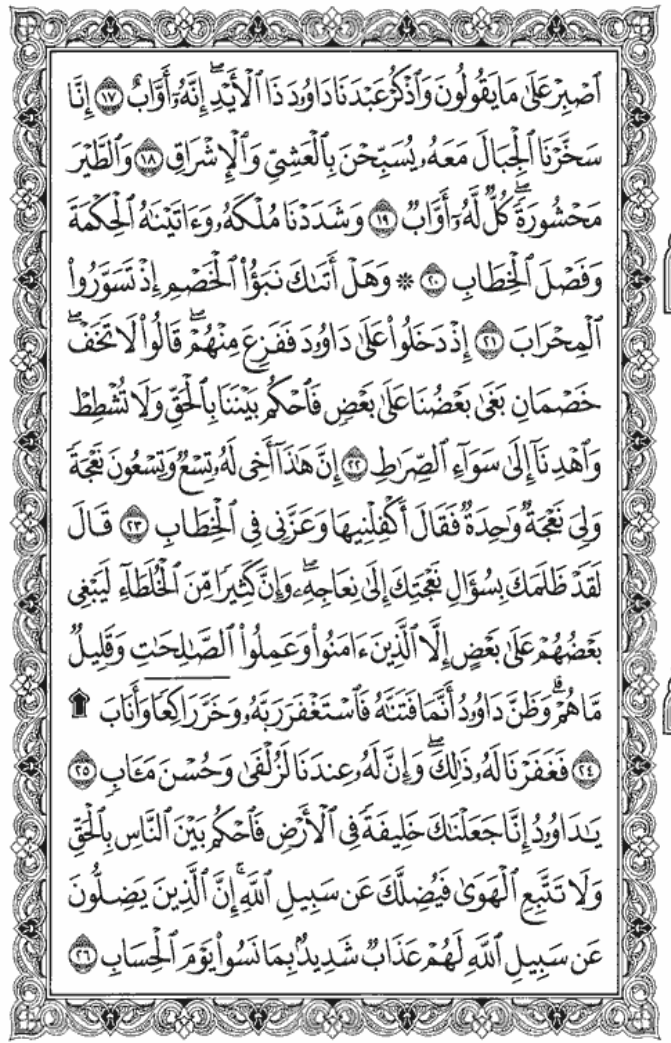 ٱصۡبِرۡ عَلَىٰ مَا يَقُولُونَ وَٱذۡكُرۡ عَبۡدَنَا دَاوُۥدَ ذَا ٱلۡأَيۡدِۖ إِنَّهُۥٓ أَوَّابٌ ١٧ إِنَّا
سَخَّرۡنَا ٱلۡجِبَالَ مَعَهُۥ يُسَبِّحۡنَ بِٱلۡعَشِيِّ وَٱلۡإِشۡرَاقِ ١٨ وَٱلطَّيۡرَ
مَحۡشُورَةٗۖ كُلّٞ لَّهُۥٓ أَوَّابٞ ١٩ وَشَدَدۡنَا مُلۡكَهُۥ وَءَاتَيۡنَٰهُ ٱلۡحِكۡمَةَ
وَفَصۡلَ ٱلۡخِطَابِ ٢٠ ۞ وَهَلۡ أَتَىٰكَ نَبَؤُاْ ٱلۡخَصۡمِ إِذۡ تَسَوَّرُواْ
ٱلۡمِحۡرَابَ ٢١ إِذۡ دَخَلُواْ عَلَىٰ دَاوُۥدَ فَفَزِعَ مِنۡهُمۡۖ قَالُواْ لَا تَخَفۡۖ
خَصۡمَانِ بَغَىٰ بَعۡضُنَا عَلَىٰ بَعۡضٖ فَٱحۡكُم بَيۡنَنَا بِٱلۡحَقِّ وَلَا تُشۡطِطۡ
وَٱهۡدِنَآ إِلَىٰ سَوَآءِ ٱلصِّرَٰطِ ٢٢ إِنَّ هَٰذَآ أَخِي لَهُۥ تِسۡعٞ وَتِسۡعُونَ نَعۡجَةٗ
وَلِيَ نَعۡجَةٞ وَٰحِدَةٞ فَقَالَ أَكۡفِلۡنِيهَا وَعَزَّنِي فِي ٱلۡخِطَابِ ٢٣ قَالَ
لَقَدۡ ظَلَمَكَ بِسُؤَالِ نَعۡجَتِكَ إِلَىٰ نِعَاجِهِۦۖ وَإِنَّ كَثِيرٗا مِّنَ ٱلۡخُلَطَآءِ لَيَبۡغِي
بَعۡضُهُمۡ عَلَىٰ بَعۡضٍ إِلَّا ٱلَّذِينَ ءَامَنُواْ وَعَمِلُواْ ٱلصَّٰلِحَٰتِ وَقَلِيلٞ
مَّا هُمۡۗ وَظَنَّ دَاوُۥدُ أَنَّمَا فَتَنَّٰهُ فَٱسۡتَغۡفَرَ رَبَّهُۥ وَخَرَّ رَاكِعٗا وَأَنَابَ ۩
٢٤ فَغَفَرۡنَا لَهُۥ ذَٰلِكَۖ وَإِنَّ لَهُۥ عِندَنَا لَزُلۡفَىٰ وَحُسۡنَ مَـَٔابٖ ٢٥
يَٰدَاوُۥدُ إِنَّا جَعَلۡنَٰكَ خَلِيفَةٗ فِي ٱلۡأَرۡضِ فَٱحۡكُم بَيۡنَ ٱلنَّاسِ بِٱلۡحَقِّ
وَلَا تَتَّبِعِ ٱلۡهَوَىٰ فَيُضِلَّكَ عَن سَبِيلِ ٱللَّهِۚ إِنَّ ٱلَّذِينَ يَضِلُّونَ
عَن سَبِيلِ ٱللَّهِ لَهُمۡ عَذَابٞ شَدِيدُۢ بِمَا نَسُواْ يَوۡمَ ٱلۡحِسَابِ ٢٦